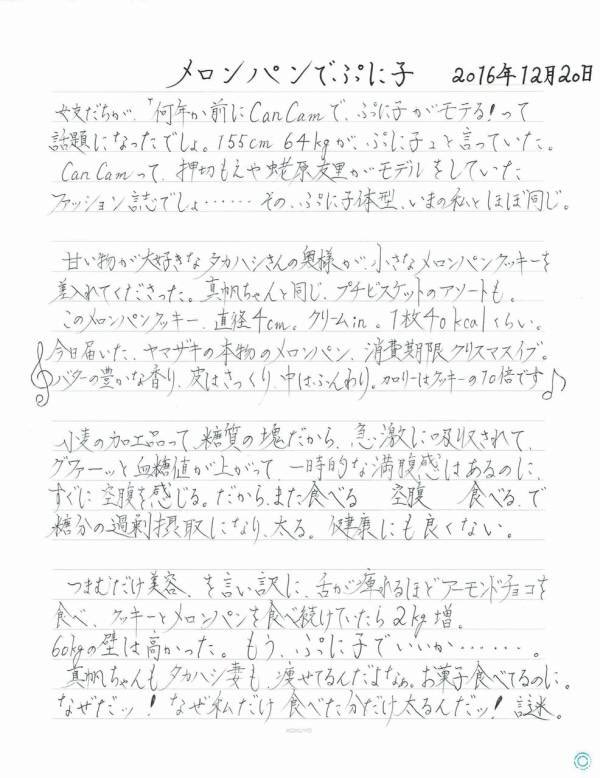 メロンパンでぷに子 2016年12月20日
女友だちが、「何年か前にCanCamで、ぷに子がモテる!って
話題になったでしょ。155cm 64kgが、ぷに子」と言っていた。
CanCamって、押切もえや蛯原友里がモデルをしていた
ファッション誌でしょ……その、ぷに子体型、いまの私とほぼ同じ。
甘い物が大好きなタカハシさんの奥様が、小さなメロンパンクッキーを
差入れてくださった。真帆ちゃんと同じ、プチビスケットのアソートも。
このメロンパンクッキー、直径4cm。クリームin。1枚40kcalくらい。
今日届いた、ヤマザキの本物のメロンパン、消費期限クリスマスイブ。
バターの豊かな香り、皮はさっくり、中はふんわり。カロリーはクッキーの10倍です♪
小麦の加工品って、糖質の塊だから、急激に吸収されて、
グァーッと血糖値が上がって、一時的な満腹感はあるのに、
すぐに空腹を感じる。だから、また食べる 空腹 食べる、で
糖分の過剰摂取になり、太る。健康にも良くない。
つまむだけ美容、を言い訳に、舌が痺れるほどアーモンドチョコを
食べ、クッキーとメロンパンを食べ続けていたら2kg増。
60kgの壁は高かった。もう、ぷに子でいいか……。
真帆ちゃんもタカハシ妻も、痩せてるんだよなぁ。お菓子食べてるのに。
なぜだッ!なぜ私だけ食べた分だけ太るんだッ!謎。
KOKUYO